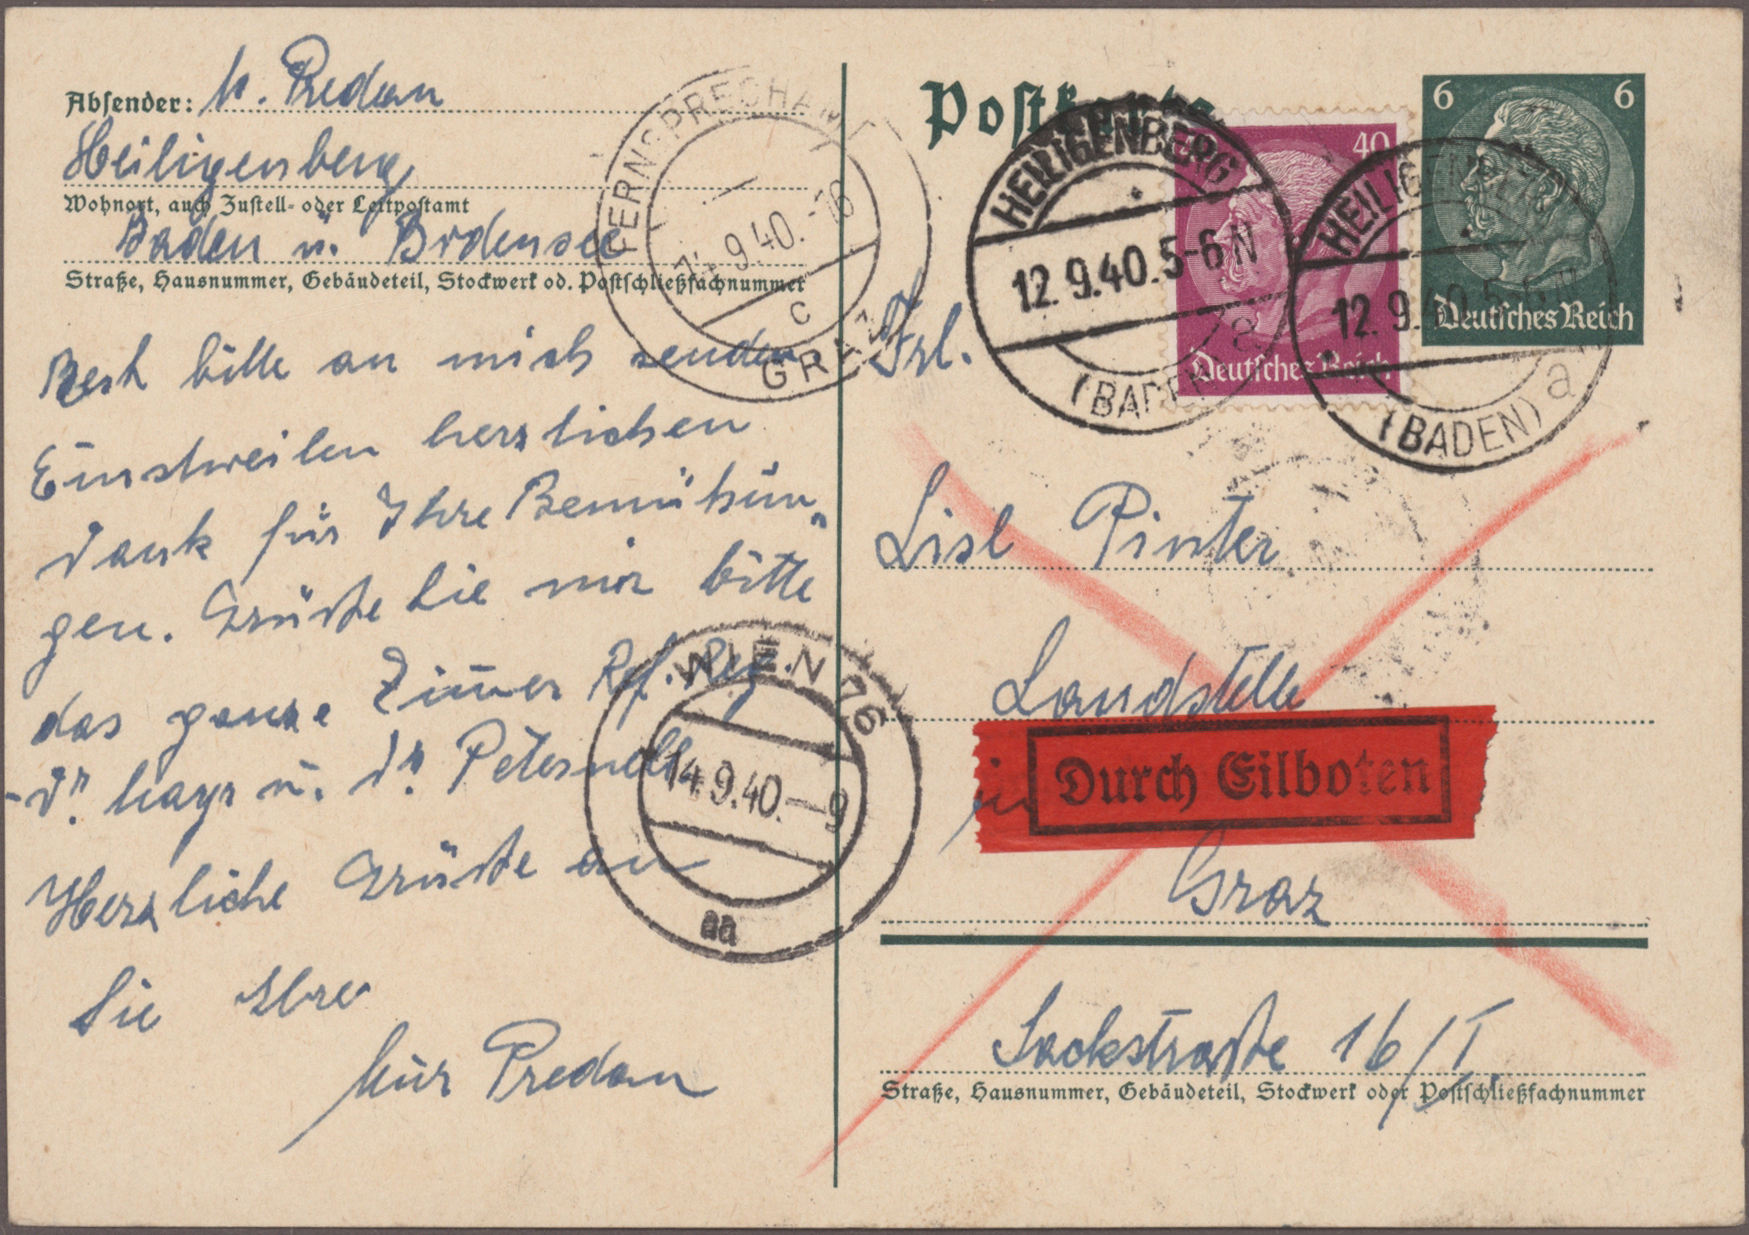 Absender: K. Predan
Heiligenberg
Wohnort, auch Zustell- oder Leitpostamt
Baden ü. Bodensee
Straße, Hausnummer, Gebäudeteil, Stockwerk od. Postschließfachnummer
Rest bitte an mich senden
Einstweilen herzlichen
Dank für Ihre Bemühun„
gen. Grüße Sie mir bitte
das ganze Zim̄er Ref. Reg.
Dr. u. Dr.
Herzliche Grüße an
Sie Ihre
Predan
FERNSPRECHAMT
14.9.40.-18
c
GRAZ
WIEN 76
14.9.40.—9
aa
Postkarte
6 6
Deutsches Reich
40
Deutsches Reich
HEILIGENBERG
12.9.40.5-6N
(BADEN) a
HEILIGENBERG
12.9.40.5-6N
(BADEN) a
Frl.
Lisl Pinter
Landstelle
in
Durch Eilboten
Graz
Sackstraße 16/I
Straße, Hausnummer, Gebäudeteil, Stockwerk oder Postschließfachnummer